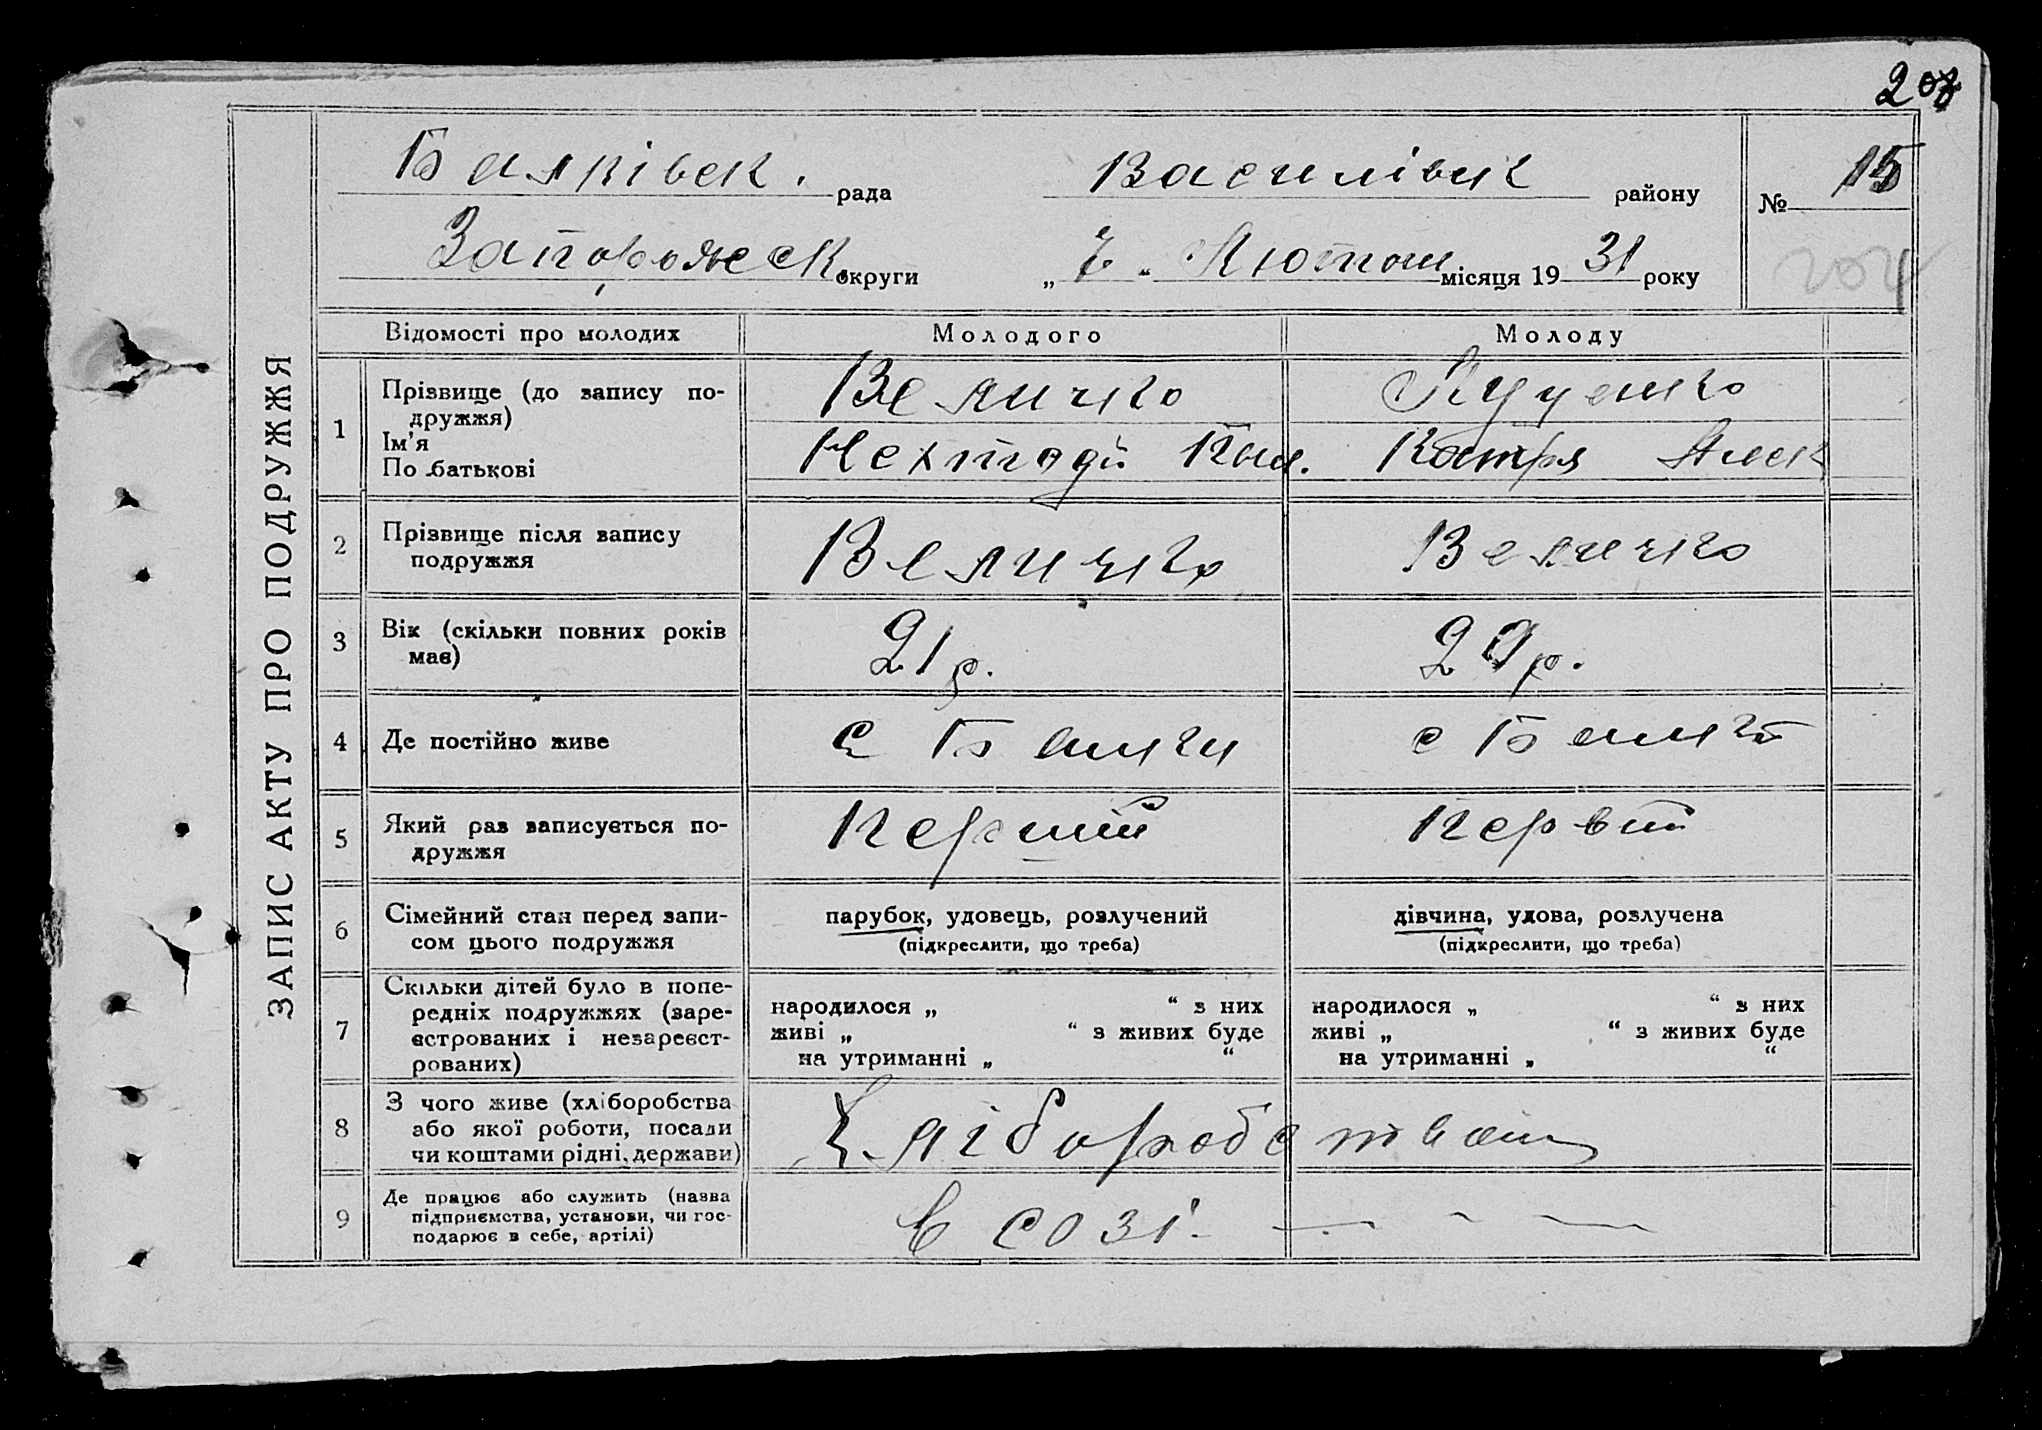 15
рада
Василівск
району
№
Запорожск
округи
„ 7 " Лютого місяця 19 31 року
204
ЗАПИС АКТУ ПРО ПОДРУЖЖЯ
Відомості про молодих
Молодого
Молоду
1
Прізвище (до запису по-
дружжя)
Ім’я
По батькові
Величко
Луценко
Катря Алек
2
Прізвище після запису
подружжя
Величко
Величко
3
Вік (скільки повних років
має)
21 р.
29 р.
4
Де постійно живе
с Балки
с Балки
5
Який раз записується по-
дружжя
Перший
Первий
6
Сімейний стан перед запи-
сом цього подружжя
парубок, удовець, розлучений
(підкреслити, що треба)
дівчина, удова, розлучена
(підкреслити, що треба)
7
Скільки дітей було в попе-
редніх подружжях (заре-
єстрованих і незареєст-
рованих)
народилося „ “ з них
живі „ “ з живих буде
на утриманні „ “
народилося „ “ з них
живі „ “ з живих буде
на утриманні „ “
8
З чого живе (хліборобства
або якої роботи, посади
чи коштами рідні, держави)
Хліборобством
9
Де працює або служить (назва
підприємства, установи, чи гос-
подарює в себе, артілі)
В созі